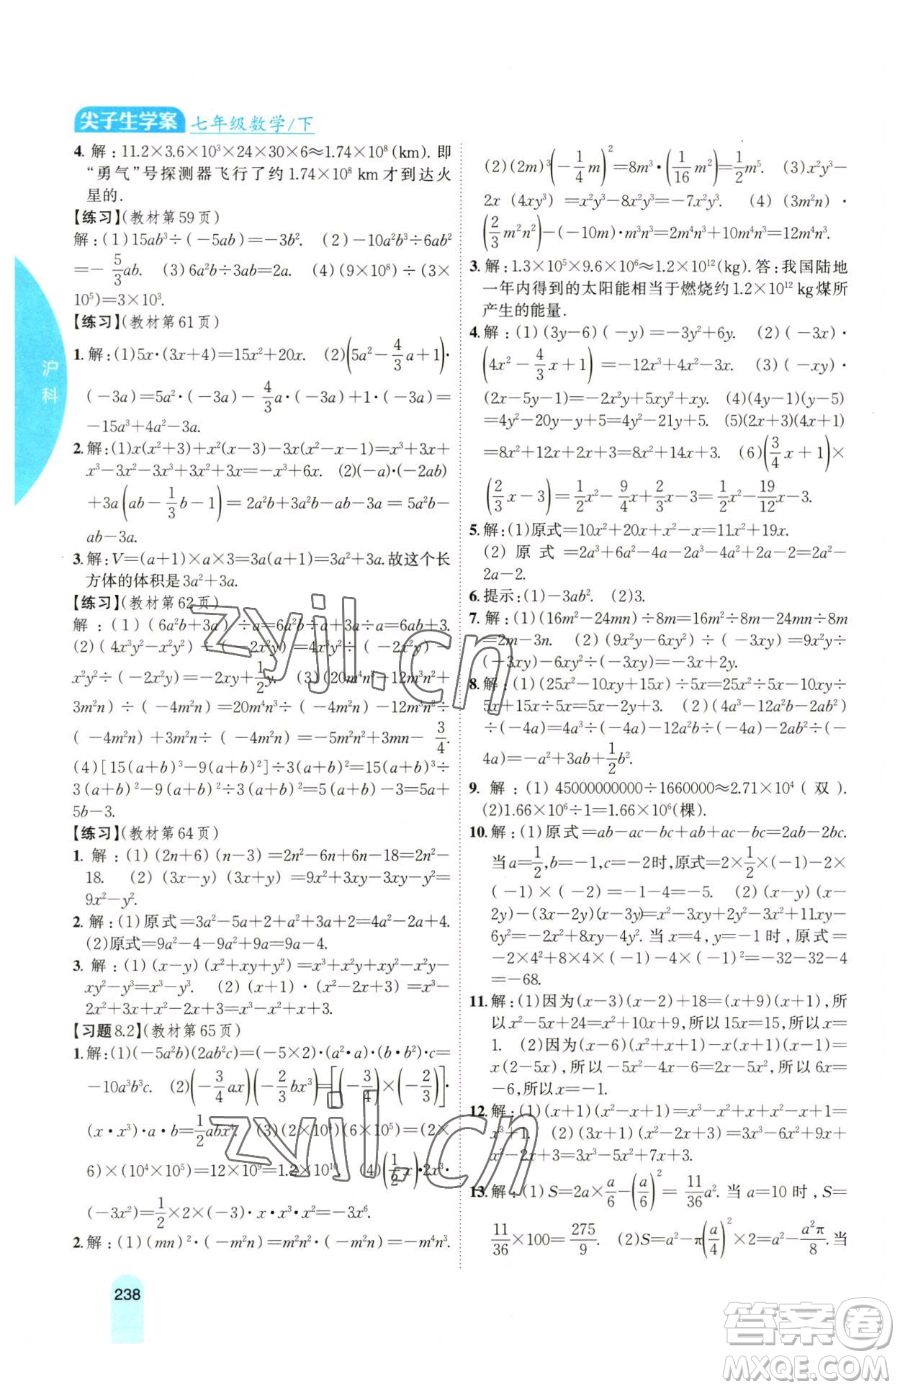 尖子生学案 七年级数学/下
4. 解:11.2×3.6×10³×24×30×6≈1.74×10⁸(km). 即
“勇气”号探测器飞行了约 1.74×10⁸ km才到达火
星的.
【练习】(教材第59页)
解:(1)15ab³÷(-5ab)=-3b². (2)-10a²b³÷6ab²
=-5/3ab. (3)6a²b÷3ab=2a. (4)(9×10⁸)÷(3×
10⁵)=3×10³.
【练习】(教材第61页)
1. 解:(1)5x·(3x+4)=15x²+20x. (2)(5a²-4/3a+1)·
(-3a)=5a²·(-3a)-4/3a·(-3a)+1·(-3a)=
-15a³+4a²-3a.
2. 解:(1)x(x²+3)+x²(x-3)-3x(x²-x-1)=x³+3x+
x³-3x²-3x³+3x²+3x=-x³+6x. (2)(-a)·(-2ab)
+3a(ab-1/3b-1)=2a²b+3a²b-ab-3a=5a²b-
ab-3a.
3. 解:V=(a+1)×a×3=3a(a+1)=3a²+3a. 故这个长
方体的体积是3a²+3a.
【练习】(教材第62页)
解:(1)(6a²b+3a)÷a=6a²b÷a+3a÷a=6ab+3.
(2)(4x³y²-x²y²)÷(-2x²y)=4x³y²÷(-2x²y)-
x²y²÷(-2x²y)=-2xy+1/2y. (3)(20m⁴n³-12m³n²+
3m²n)÷(-4m²n)=20m⁴n³÷(-4m²n)-12m³n²÷
(-4m²n)+3m²n÷(-4m²n)=-5m²n²+3mn-3/4.
(4)[15(a+b)³-9(a+b)²]÷3(a+b)²=15(a+b)³÷
3(a+b)²-9(a+b)²÷3(a+b)²=5(a+b)-3=5a+
5b-3.
【练习】(教材第64页)
1. 解:(1)(2n+6)(n-3)=2n²-6n+6n-18=2n²-
18. (2)(3x-y)(3x+y)=9x²+3xy-3xy-y²=
9x²-y².
2. 解:(1)原式=3a²-5a+2+a²+3a+2=4a²-2a+4.
(2)原式=9a²-4-9a²+9a=9a-4.
3. 解:(1)(x-y)(x²+xy+y²)=x³+x²y+xy²-x²y-
xy²-y³=x³-y³. (2)(x+1)·(x²-2x+3)=x³-
2x²+3x+x²-2x+3=x³-x²+x+3.
【习题8.2】(教材第65页)
1. 解:(1)(-5a²b)(2ab²c)=(-5×2)·(a²·a)·(b·b²)·c=
-10a³b³c. (2)(-3/4ax)(-2/3bx³)=[(-3/4)×(-2/3)]·
(x·x³)·a·b=1/2abx⁴. (3)(2×10⁴)(6×10⁵)=(2×
6)×(10⁴×10⁵)=12×10⁹=1.2×10¹⁰. (4)(1/2x)·2x³·
(-3x²)=1/2×2×(-3)·x·x³·x²=-3x⁶.
2. 解:(1)(mn)²·(-m²n)=m²n²·(-m²n)=-m⁴n³.
(2)(2m)³(-1/4m)²=8m³·(1/16m²)=1/2m⁵. (3)x²y²-
2x(4xy³)=x²y³-8x²y³=-7x²y³. (4)(3m²n)·
(2/3m²n²)-(-10m)·m³n³=2m⁴n³+10m⁴n³=12m⁴n³.
3. 解:1.3×10⁵×9.6×10⁶≈1.2×10¹²(kg). 答:我国陆地
一年内得到的太阳能相当于燃烧约1.2×10¹² kg煤所
产生的能量.
4. 解:(1)(3y-6)(-y)=-3y²+6y. (2)(-3x)·
(4x²-4/3x+1)=-12x³+4x²-3x. (3)
(2x-5y)(-2x)=-4x²+10xy. (4)(4y-1)(y-5)
=4y²-20y-y+5=4y²-21y+5. (5)(2x+3)(4x+1)
=8x²+12x+2x+3=8x²+14x+3. (6)(3/4x+1)×
(2/3x-3)=1/2x²-9/4x+2/3x-3=1/2x²-19/12x-3.
5. 解:(1)原式=10x²+20x+x²-x=11x²+19x.
(2)原式=2a³+6a²-4a-2a³-4a²+2a-2=2a²
-2a-2.
6. 提示:(1)-3ab². (2)3.
7. 解:(1)(16m²-24mn)÷8m=16m²÷8m-24mn÷8m=
2m-3n. (2)(9x²y-6xy²)÷(-3xy)=9x²y÷
(-3xy)-6xy²÷(-3xy)=-3x+2y.
8. 解:(1)(25x²-10xy+15x)÷5x=25x²÷5x-10xy÷
5x+15x÷5x=5x-2y+3. (2)(4a³-12a²b-2ab²)
÷(-4a)=4a³÷(-4a)-12a²b÷(-4a)-2ab²÷(-
4a)=-a²+3ab+1/2b².
9. 解:(1)45000000000÷1660000≈2.71×10⁴(双).
(2)1.66×10⁶÷1=1.66×10⁶(棵).
10. 解:(1)原式=ab-ac-bc+ab+ac-bc=2ab-2bc.
当a=1/2,b=2,c=-1时,原式=2×1/2×(-1)-2×
(-1)×(-2)=-1-4=-5. (2)原式=2x(x-
2y)-(3x-2y)(x-3y)=-x²y+2y²-3x²+9xy+
2xy-6y²=-x²+7xy-6y². 当x=4,y=-1时,原式=
-2×4²+8×4×(-1)-4×(-1)²=-32-32-4
=-68.
11. 解:(1)因为(x-3)(x-2)+18=(x+9)(x+1),所
以x²-5x+24=x²+10x+9,所以15x=15,所以x=
1. (2)因为(3x+4)(3x-4)=9(x-2)(x+3),所以
9x²-16=9x²+9x-54,所以-16=9x-54.
12. 解:(1)(x+1)(x²-x+1)=x³-x²+x+x²-x+1=
x³+1. (2)(3x+1)(x+2)=3x²+6x+x+2=3x²
+7x+2.
13. 解:(1)S=2a×a/6-(a/6)²=11/36a². 当a=10时,S=
11/36×100=275/9. (2)S=a²-π(a/4)²×2=a²-a²π/8. 当
沪科
238
zyjl.cn
zyjl.cn
答案圈
MXQE.COM